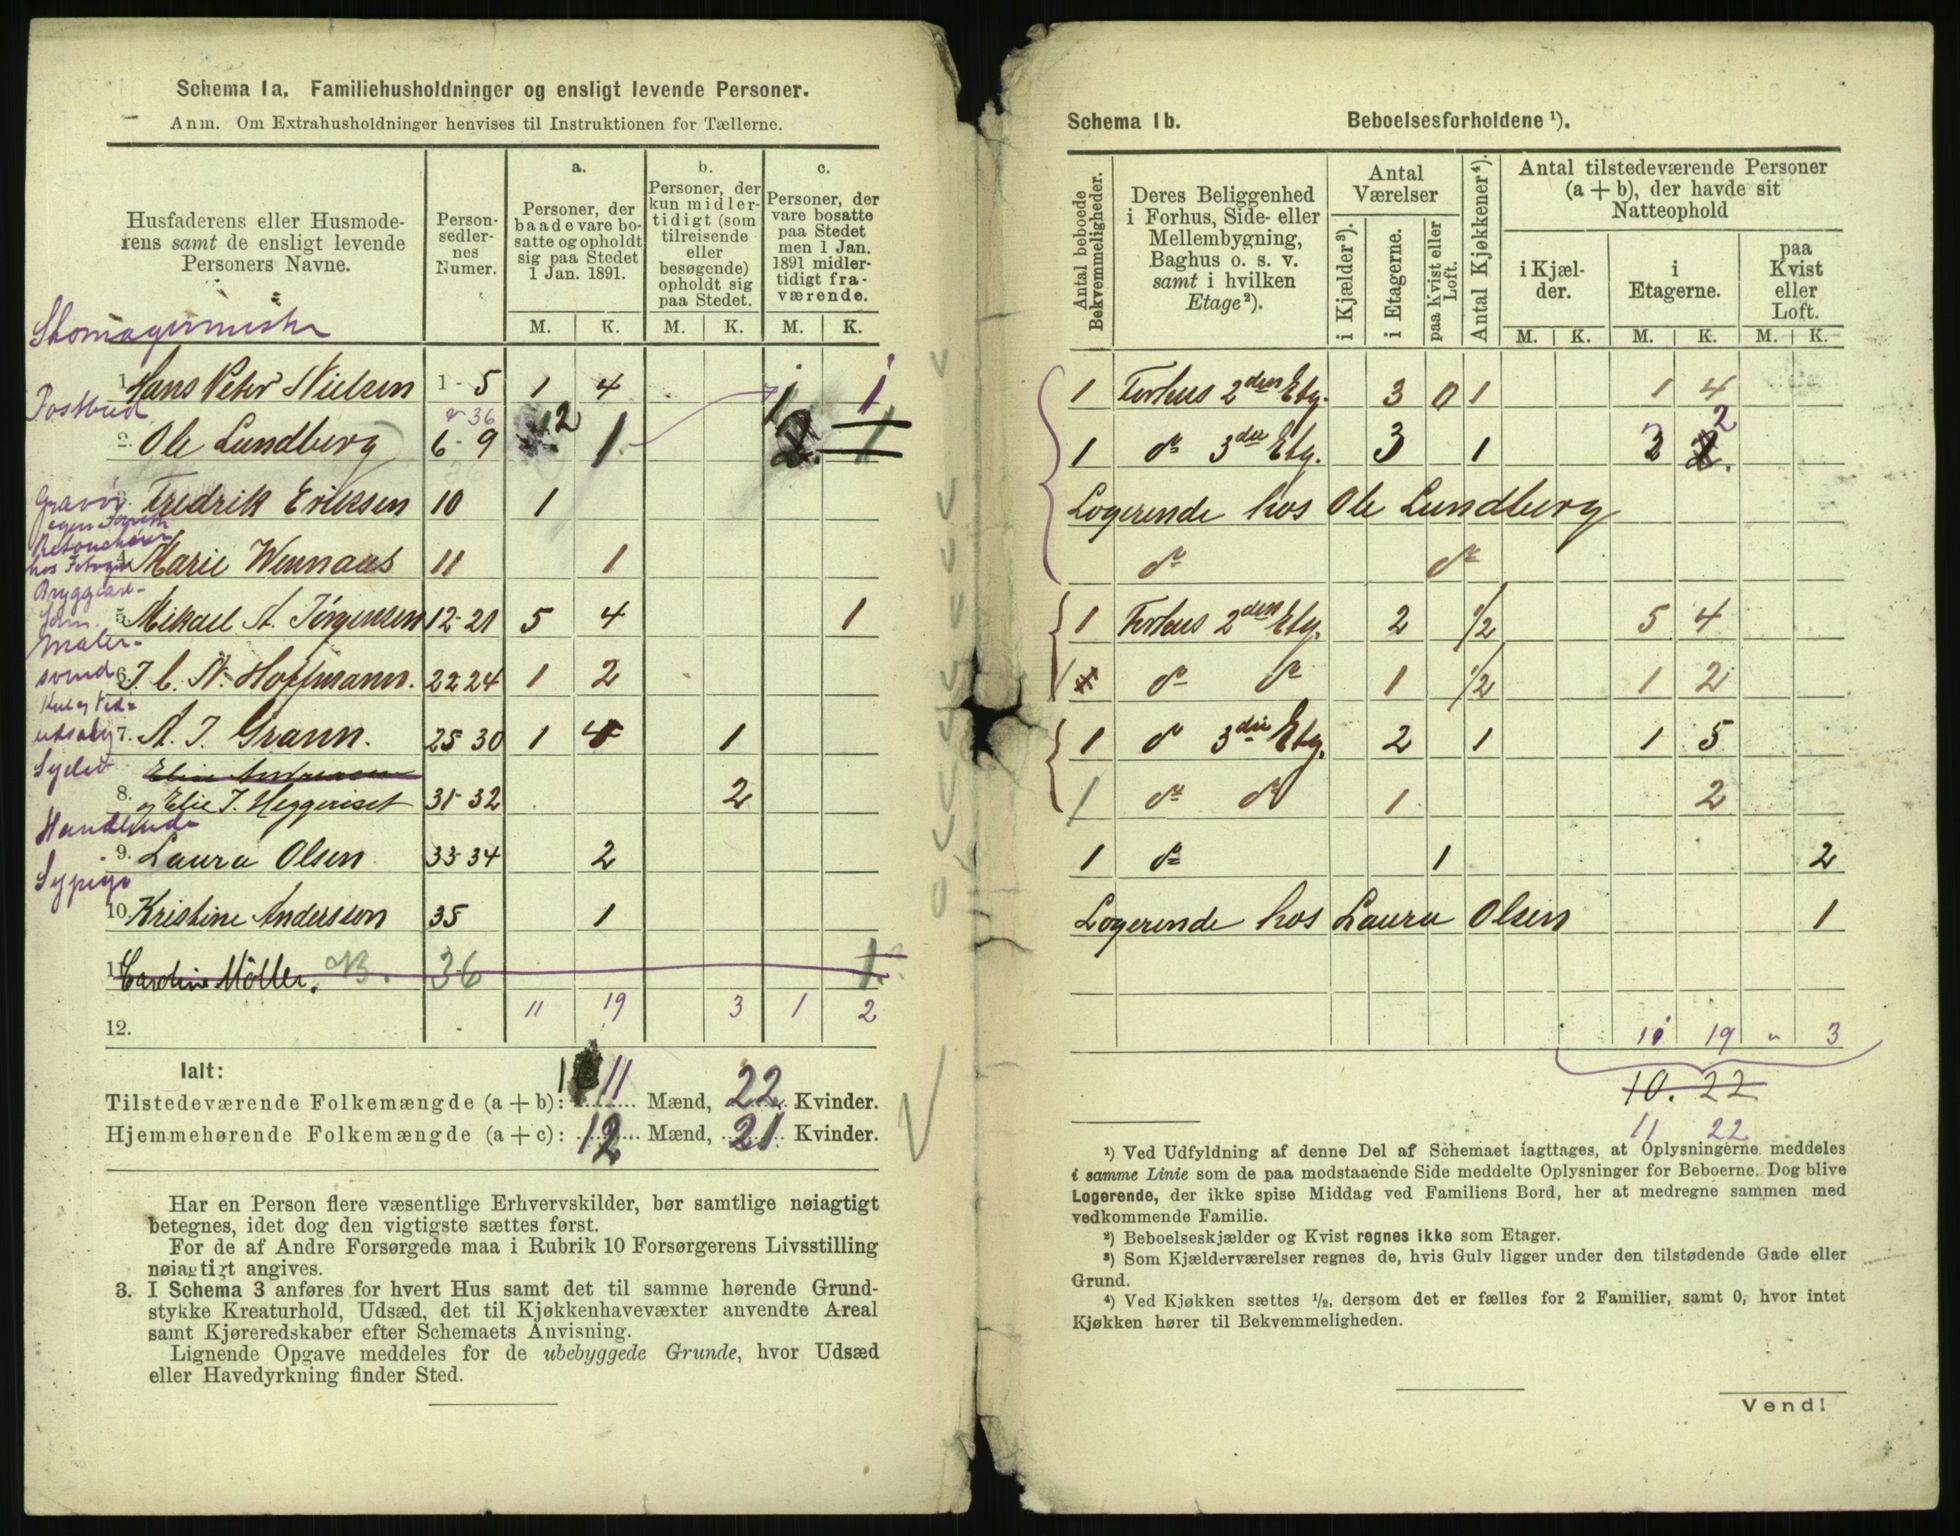 Schema 1a. Familiehusholdninger og ensligt levende Personer.
Anm. Om Extrahusholdninger henvises til Instruktionen for Tællerne.
Husfaderens eller Husmode-
rens samt de ensligt levende
Personers Navne.
Person-
sedler-
nes
Numer.
a.
Personer, der
baade vare bo-
satte og opholdt
sig paa Stedet
1 Jan. 1891.
b.
Personer, der
kun midler-
tidigt (som
tilreisende
eller
besøgende)
opholdt sig
paa Stedet.
c.
Personer, der
vare bosatte
paa Stedet
men 1 Jan.
1891 midler-
tidigt fra-
værende.
M. K. M. K. M. K.
Skomagermester
1. Hans Peter Nielsen 1-5 1 4 1 1
Postbud
& 36
2. Ole Lundberg 6-9 12 1 2 1
Gravør
3. Fredrik Eriksen 10 1
Retoucherer
hos Fotograf
4. Marie Wennaas 11 1
5. Mikael A. Jørgensen 12-21 5 4 1
Maler-
svend
6. J. C. N. Hoffmann. 22-24 1 2
udsalg
7. A. J. Grann. 25-30 1 4 1
8. og Elie J. Heggeriset 31-32 2
Handlende
9. Laura Olsen 33-34 2
Sypige
10. Kristine Andersson 35 1
11. Caroline Möller. 36 1
11 19 3 1 2
12.
Ialt:
Tilstedeværende Folkemængde (a + b): 11 Mænd, 22 Kvinder.
Hjemmehørende Folkemængde (a + c): 12 Mænd, 21 Kvinder.
Har en Person flere væsentlige Erhvervskilder, bør samtlige nøiagtigt
betegnes, idet dog den vigtigste sættes først.
For de af Andre Forsørgede maa i Rubrik 10 Forsørgerens Livsstilling
nøiagtigt angives.
3. I Schema 3 anføres for hvert Hus samt det til samme hørende Grund-
stykke Kreaturhold, Udsæd, det til Kjøkkenhavevæxter anvendte Areal
samt Kjøreredskaber efter Schemaets Anvisning.
Lignende Opgave meddeles for de ubebyggede Grunde, hvor Udsæd
eller Havedyrkning finder Sted.
Schema 1b. Beboelsesforholdene ¹).
Antal beboede
Bekvemmeligheder.
Deres Beliggenhed
i Forhus, Side- eller
Mellembygning,
Baghus o. s. v.
samt i hvilken
Etage²).
Antal
Værelser
i Kjælder³).
i Etagerne.
paa Kvist eller
Loft.
Antal Kjøkkener⁴).
Antal tilstedeværende Personer
(a + b), der havde sit
Natteophold
i Kjæl-
der.
i
Etagerne.
paa
Kvist
eller
Loft.
M. K. M. K. M. K.
1 Forhus 2den Etg. 3 0 1 1 4
1 do 3die Etg. 3 1 3 2
Logerende hos Ole Lundberg
do do
1 Forhus 2den Etg. 2 1/2 5 4
1 do do 1 1/2 1 2
1 do 3die Etg. 2 1 1 5
1 do do 1 2
1 do 1 2
Logerende hos Laura Olsen 1
11 19 " 3
10. 22
11 22
¹) Ved Udfyldning af denne Del af Schemaet iagttages, at Oplysningerne meddeles
i samme Linie som de paa modstaaende Side meddelte Oplysninger for Beboerne. Dog blive
Logerende, der ikke spise Middag ved Familiens Bord, her at medregne sammen med
vedkommende Familie.
²) Beboelseskjælder og Kvist regnes ikke som Etager.
³) Som Kjælderværelser regnes de, hvis Gulv ligger under den tilstødende Gade eller
Grund.
⁴) Ved Kjøkken sættes ½, dersom det er fælles for 2 Familier, samt 0, hvor intet
Kjøkken hører til Bekvemmeligheden.
Vend!